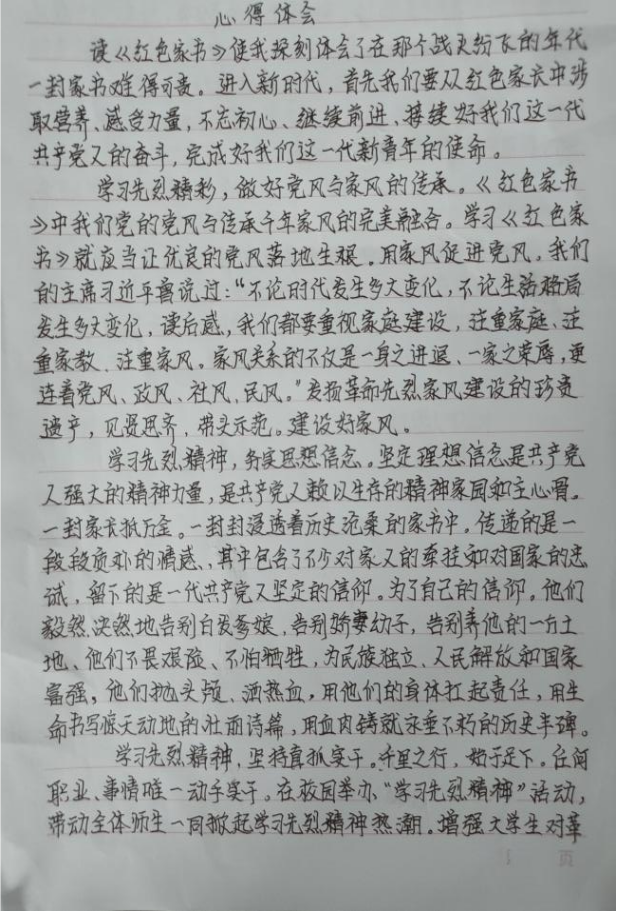 心得体会
读《红色家书》使我深刻体会了在那个战火纷飞的年代
一封家书难得可贵。进入新时代，首先我们要从红色家长中涉
取营养、感受力量，不忘初心、继续前进、接续好我们这一代
共产党人的奋斗，完成好我们这一代新青年的使命。
学习先烈精彩，做好党风与家风的传承。《红色家书
》中我们党的党风与传承千年家风的完美融合。学习《红色家
书》就应当让优良的党风落地生根。用家风促进党风，我们
的主席习近平曾说过：“不论时代发生多大变化，不论生活格局
发生多大变化，读后感，我们都要重视家庭建设，注重家庭、注
重家教、注重家风。家风关系的不仅是一身之进退、一家之荣辱，更
连着党风、政风、社风、民风。”发扬革命先烈家风建设的珍贵
遗产，见贤思齐，带头示范。建设好家风。
学习先烈精神，务实思想信念。坚定理想信念是共产党
人强大的精神力量，是共产党人赖以生存的精神家园和主心骨。
一封家长抵万金。一封封浸透着历史沧桑的家书中，传递的是一
段段质朴的情感、其中包含了不少对家人的牵挂和对国家的忠
诚，留下的是一代共产党人坚定的信仰。为了自己的信仰，他们
毅然决然地告别白发爹娘，告别娇妻幼子，告别养他的一方土
地、他们不畏艰险、不怕牺牲，为民族独立、人民解放和国家
富强，他们抛头颅、洒热血，用他们的身体扛起责任，用生
命书写惊天动地的壮丽诗篇，用血肉铸就永垂不朽的历史丰碑。
学习先烈精神，坚持真抓实干。千里之行，始于足下。任何
职业、事情唯一动手实干。在校园举办“学习先烈精神”活动，
带动全体师生一同掀起学习先烈精神热潮。增强大学生对革
页